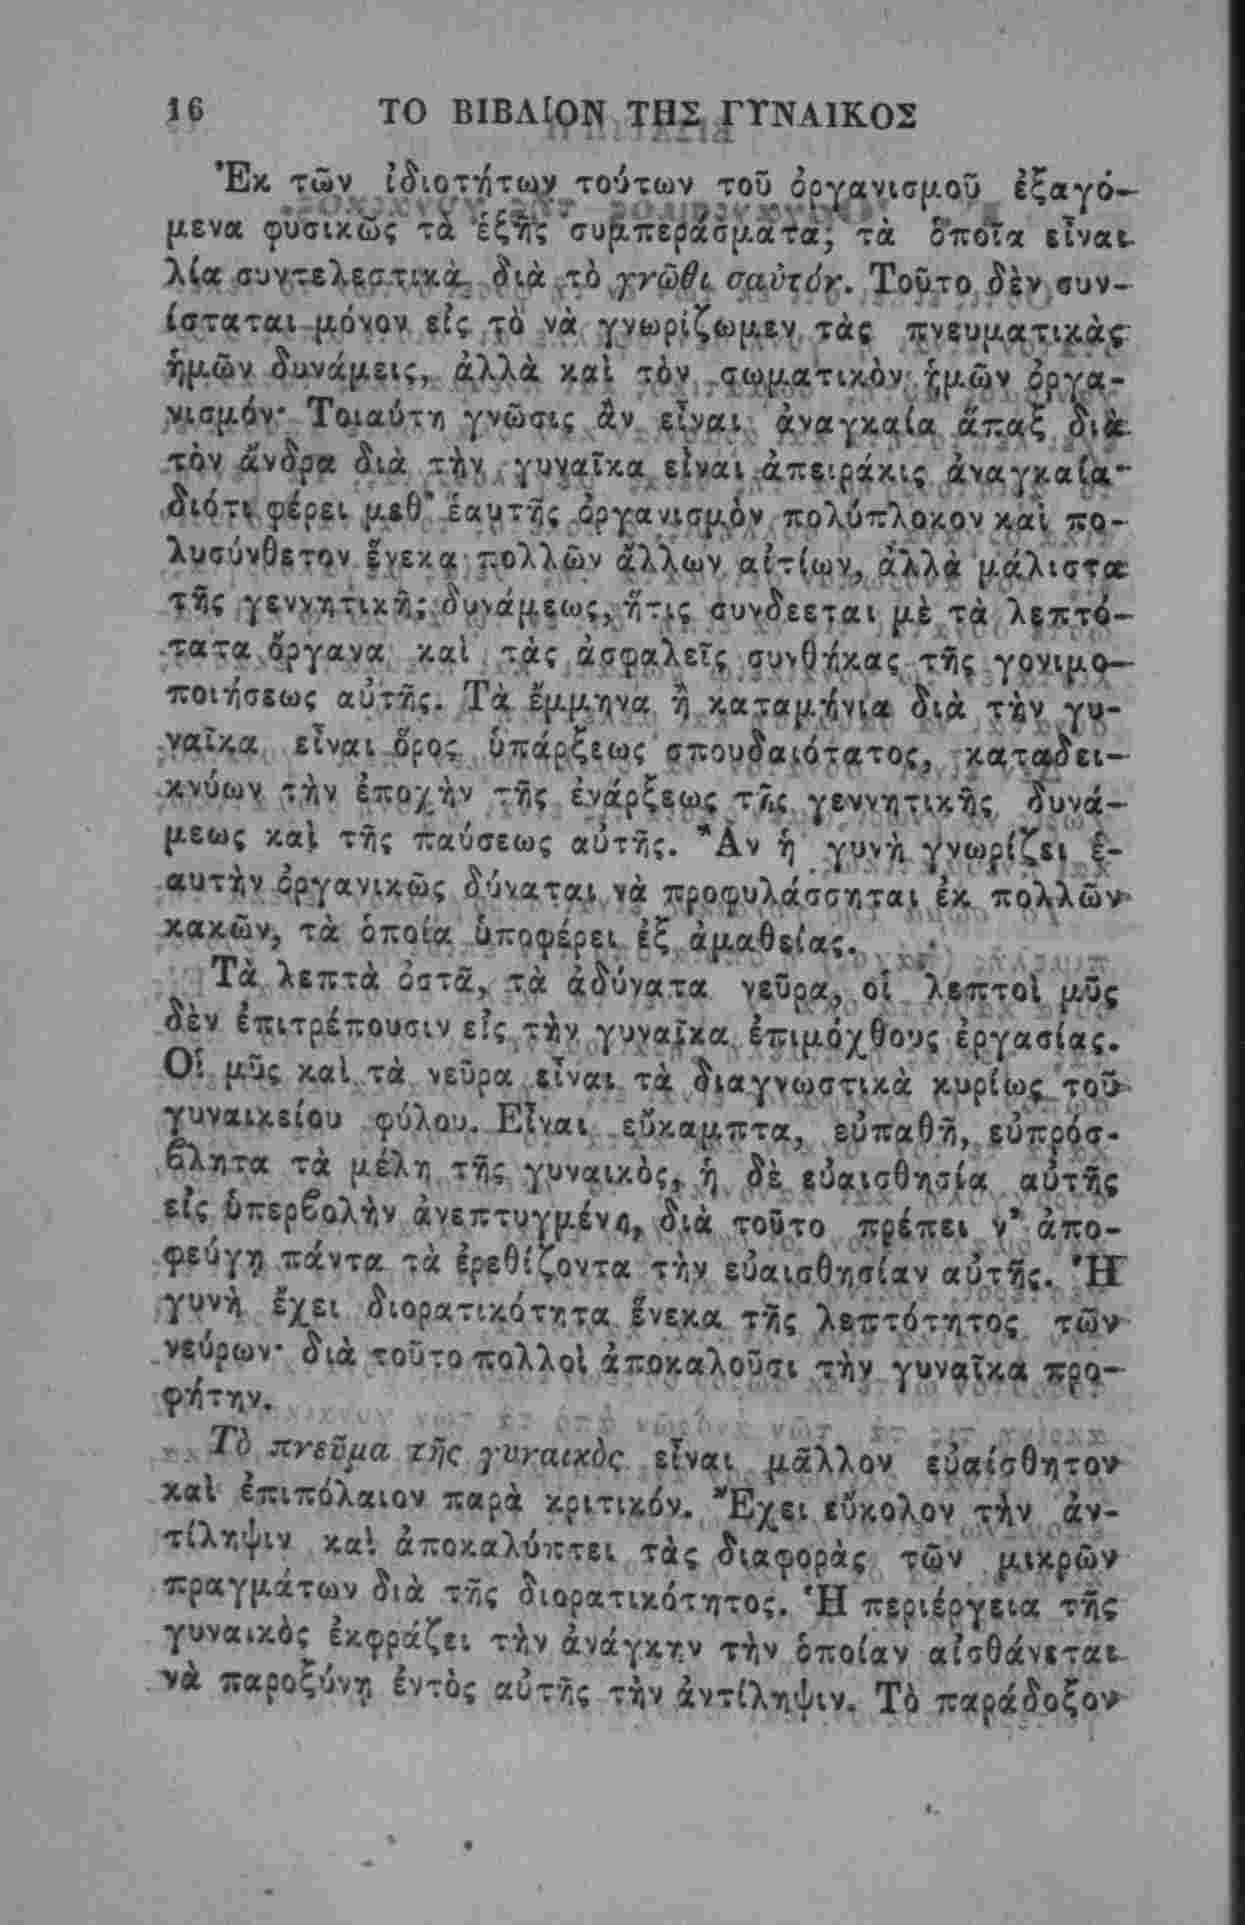 16 ΤΟ ΒΙΒΛΙΟΝ ΤΗΣ ΓΥΝΑΙΚΟΣ
Ἐκ τῶν ἰδιοτήτων τούτων τοῦ ὀργανισμοῦ ἐξαγό-
μενα φυσικῶς τὰ ἑξῆς συμπεράσματα, τὰ ὁποῖα εἶναι
λία συντελεστικὰ διὰ τὸ γνῶθι σαὐτόν. Τοῦτο δὲν συν-
ίσταται μόνον εἰς τὸ νὰ γνωρίζωμεν τὰς πνευματικὰς
ἡμῶν δυνάμεις, ἀλλὰ καὶ τὸν σωματικὸν ἡμῶν ὀργα-
νισμόν· Τοιαύτη γνῶσις ἂν εἶναι ἀναγκαία ἅπαξ διὰ
τὸν ἄνδρα διὰ τὴν γυναῖκα εἶναι ἀπειράκις ἀναγκαία·
διότι φέρει μεθ' ἑαυτῆς ὀργανισμὸν πολύπλοκον καὶ πο-
λυσύνθετον ἕνεκα πολλῶν ἄλλων αἰτίων, ἀλλὰ μάλιστα
τῆς γεννητικῆς δυνάμεως, ἥτις συνδεεται μὲ τὰ λεπτό-
τατα ὄργανα καὶ τὰς ἀσφαλεῖς συνθήκας τῆς γονιμο-
ποιήσεως αὐτῆς. Τὰ ἔμμηνα ἢ καταμήνια διὰ τὴν γυ-
ναῖκα εἶναι ὅρος ὑπάρξεως σπουδαιότατος, καταδει-
κνύων τὴν ἐποχὴν τῆς ἐνάρξεως τῆς γεννητικῆς δυνά-
μεως καὶ τῆς παύσεως αὐτῆς. Ἂν ἡ γυνὴ γνωρίζει ἑ-
αυτὴν ὀργανικῶς δύναται νὰ προφυλάσσηται ἐκ πολλῶν
κακῶν, τὰ ὁποία ὑποφέρει ἐξ ἀμαθείας.
Τὰ λεπτὰ ὀστᾶ, τὰ ἀδύνατα νεῦρα, οἱ λεπτοὶ μῦς
δὲν ἐπιτρέπουσιν εἰς τὴν γυναῖκα ἐπιμόχθους ἐργασίας.
Οἱ μῦς καὶ τὰ νεῦρα εἶναι τὰ διαγνωστικὰ κυρίως τοῦ
γυναικείου φύλου. Εἶναι εὔκαμπτα, εὐπαθῆ, εὐπρόσ-
βλητα τὰ μέλη τῆς γυναικὸς, ἡ δὲ εὐαισθησία αὐτῆς
εἰς ὑπερβολὴν ἀνεπτυγμένη, διὰ τοῦτο πρέπει ν' ἀπο-
φεύγῃ πάντα τὰ ἐρεθίζοντα τὴν εὐαισθησίαν αὐτῆς. Ἡ
γυνὴ ἔχει διορατικότητα ἕνεκα τῆς λεπτότητος τῶν
νεύρων· διὰ τοῦτο πολλοὶ ἀποκαλοῦσι τὴν γυναῖκα προ-
φήτην.
Τὸ πνεῦμα τῆς γυναικὸς εἶναι μᾶλλον εὐαίσθητον
καὶ ἐπιπόλαιον παρὰ κριτικόν. Ἔχει εὔκολον τὴν ἀν-
τίληψιν καὶ ἀποκαλύπτει τὰς διαφορὰς τῶν μικρῶν
πραγμάτων διὰ τῆς διορατικότητος. Ἡ περιέργεια τῆς
γυναικὸς ἐκφράζει τὴν ἀνάγκην τὴν ὁποίαν αἰσθάνεται
νὰ παροξύνῃ ἐντὸς αὐτῆς τὴν ἀντίληψιν. Τὸ παράδοξον